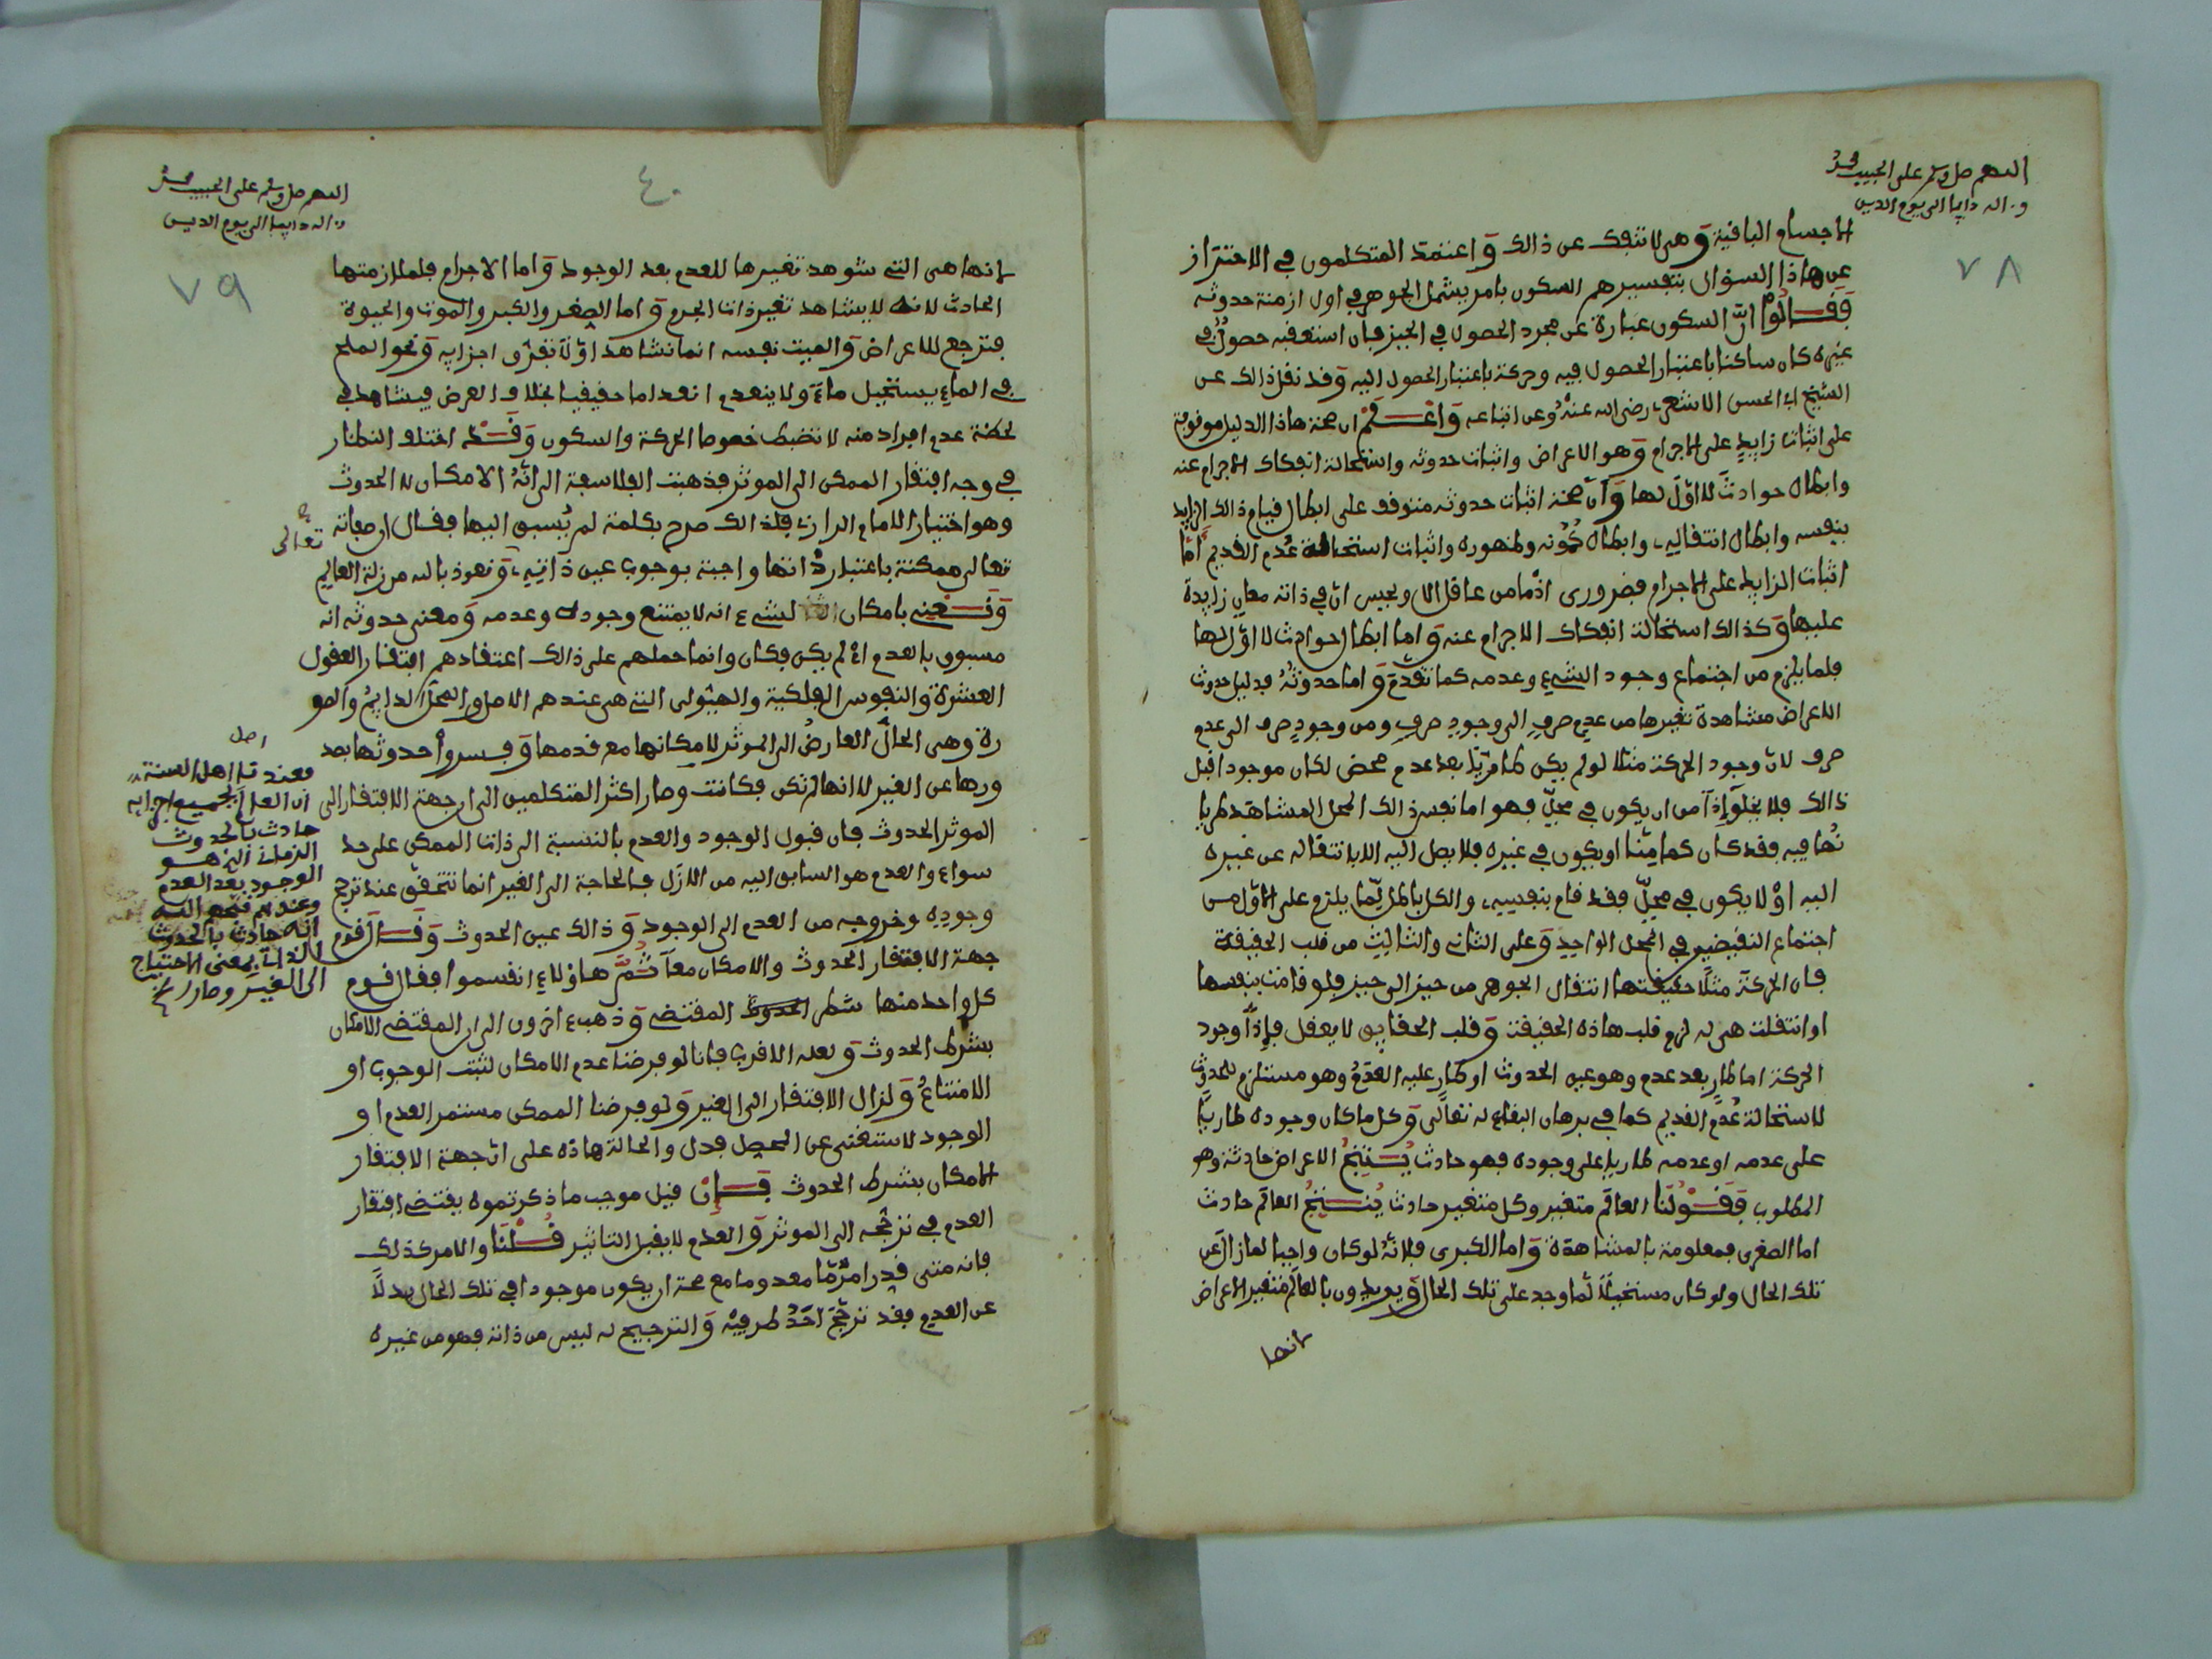 اللهم صل وسلم على الحبيب محمد
وءاله دايما الى يوم الدين
٧٨
الاجسام الباقية وهى لا تنفك عن ذالك واعتمد المتكلمون في الاحتراز
عن هاذا السؤال بتفسيرهم السكون بامر يشمل الجوهر في اول ازمنة حدوثه
فقالوا ان السكون عبارة عن مجرد الحصول في الحيز فان استعقبه حصول في
غيره كان ساكنا باعتبار الحصول فيه وحركة باعتبار الحصول اليه وقد نقل ذالك عن
الشيخ ابي الحسن الاشعري رضى الله عنه وعن اتباعه واعلم ان صحة هاذا الدليل موقوفة
على اثبات زايد على الاجرام وهو الاعراض واثبات حدوثه واستحالة انفكاك الاجرام عنه
وابطال حوادث لا اول لها وان صحة اثبات حدوثه متوقف على ابطال قيام ذالك الزايد
بنفسه وابطال انتقاله وابطال كمونه وظهوره واثبات استحالة عدم القديم اما
اثبات الزايد على الاجرام فضرورى اذ ما من عاقل الا ويحس ان في ذاته معاني زايدة
عليها وكذالك استحالة انفكاك الاجرام عنه واما ابطال حوادث لا اول لها
فلما يلزم من اجتماع وجود الشيء وعدمه كما تقدم واما حدوثه فدليل حدوث
الاعراض مشاهدة تغيرها من عدم صرف الى وجود صرف ومن وجود صرف الى عدم
صرف لان وجود الحركة مثلا لو لم يكن طاريا بعد عدم محض لكان موجودا قبل
ذالك فلا يخلوا اذا من ان يكون في محل فهو اما نفس ذالك المحل المشاهد طريا
نها فيه فقد كان كامنا او يكون في غيره فلا يصل اليه الا بانتقاله عن غيره
اليه او لا يكون في محل فقد قام بنفسه والكل باطل لما يلزم على الاول من
اجتماع النقيضين في المحل الواحد وعلى الثاني والثالث من قلب الحقيقة
فان الحركة مثلا حقيقتها انتقال الجوهر من حيز الى حيز فلو قامت بنفسها
او انتقلت هى له لزم قلب هاذه الحقيقة وقلب الحقايق لا يعقل فاذا وجود
الحركة اما طار بعد عدم وهو عين الحدوث او طار عليه العدم وهو مستلزم للحدوث
لاستحالة عدم القديم كما في برهان البقاء له تعالى وكل ما كان وجوده طاريا
على عدمه او عدمه طاريا على وجوده فهو حادث ينتج الاعراض حادثة وهو
المطلوب فقولنا العالم متغير وكل متغير حادث ينتج العالم حادث
اما الصغرى فمعلومة بالمشاهدة واما الكبرى فلانه لو كان واجبا لما زال عن
تلك الحال ولو كان مستحيلا لما وجد على تلك الحال ويريدون بالعالم متغير الاعراض
لانها
اللهم صل وسلم على الحبيب محمد
وءاله دايما الى يوم الدين
٤٠
٧٩
لانها هى التى شوهد تغيرها للعدم بعد الوجود واما الاجرام فلملازمتها
الحادث لانه لا يشاهد تغير ذات الجرم واما الصغر والكبر والموت والحيوة
فترجع للاعراض والميت نفسه انما نشاهد اولا تفرق اجزايه ونحو الملح
في الماء يستحيل ماء ولا ينعدم انعداما حقيقيا بخلاف العرض فيشاهد في
لحظة عدم افراد منه لا تنضبط خصوصا الحركة والسكون وقد اختلف النظار
في وجه افتقار الممكن الى الموثر فذهبت الفلاسفة الى انه الامكان لا الحدوث
وهو اختيار الامام الرازى فلذالك صرح بكلمة لم يسبق اليها فقال ان صفاته تعالى
تعالى ممكنة باعتبار ذاتها واجبة بوجوب عين ذاته ونعوذ بالله من زلة العالم
ونعنى بامكان الشيء انه لا يمتنع وجوده وعدمه ومعنى حدوثه انه
مسبوق بالعدم اى لم يكن فكان وانما حملهم على ذالك اعتقادهم افتقار العقول
العشرة والنفوس الفلكية والهيولى التى هى عندهم الاصل والمحل الدايم والصو
رة وهى الحال العارض الى الموثر لامكانها مع قدمها وفسروا حدوثها بصد
ورها عن الغير لا انها لم تكن فكانت وصار اكثر المتكلمين الى ان جهة الافتقار الى
الموثر الحدوث فان قبول الوجود والعدم بالنسبة الى ذات الممكن على حد
سواء والعدم هو السابق اليه من الازل فالحاجة الى الغير انما تتحقق عند ترجح
وجوده وخروجه من العدم الى الوجود وذالك عين الحدوث وقال قوم
جهة الافتقار الحدوث والامكان معا ثم هاؤلاء انقسموا فقال قوم
كل واحد منها شطر المقتضى وذهب ءاخرون الى ان المقتضى الامكان
بشرط الحدوث ولعله الاقرب فانا لو فرضنا عدم الامكان لثبت الوجوب او
الامتناع ولزال الافتقار الى الغير ولو فرضنا الممكن مستمر العدم او
الوجود لاستغنى عن المحصل فدل والحالة هاذه على ان جهة الافتقار
الامكان بشرط الحدوث فان قيل موجب ما ذكرتموه يقتضى افتقار
العدم في ترجحه الى الموثر والعدم لا يقبل التاثير قلنا والامر كذلك
فانه متى قدر امر ما معدوما مع صحة ان يكون موجودا في تلك الحال بدلا
عن العدم فقد ترجح احد طرفيه والترجيح له ليس من ذاته فهو من غيره
اصل
وعندنا اهل السنة
ان العالم بجميع اجزايه
حادث بالحدوث
الزمانى الذى هو
الوجود بعد العدم
وعندهم
انه حادث بالحدوث
الذاتى بمعنى الاحتياج
الى الغير وصار الخ